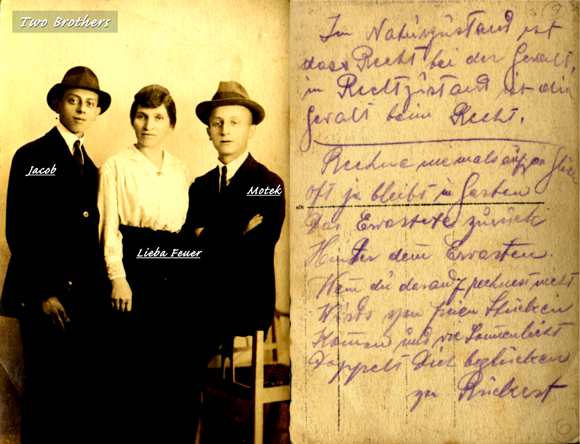 Two Brothers
Jacob
Motek
Lieba Feuer
Im Naturzustand ist
das Recht bei der Gewalt,
in Rechtzustand ist die
gewalt beim Recht.
Rechne niemals
Oft ja bleibt in Garten
Das Erwartete zurück
Hinter dem Erwarten.
Wenn du darauf rechnest nicht
Wirds von freien Stücken
Kommen und wie Sonnenlicht
Doppelt Dich beglücken
Rückert